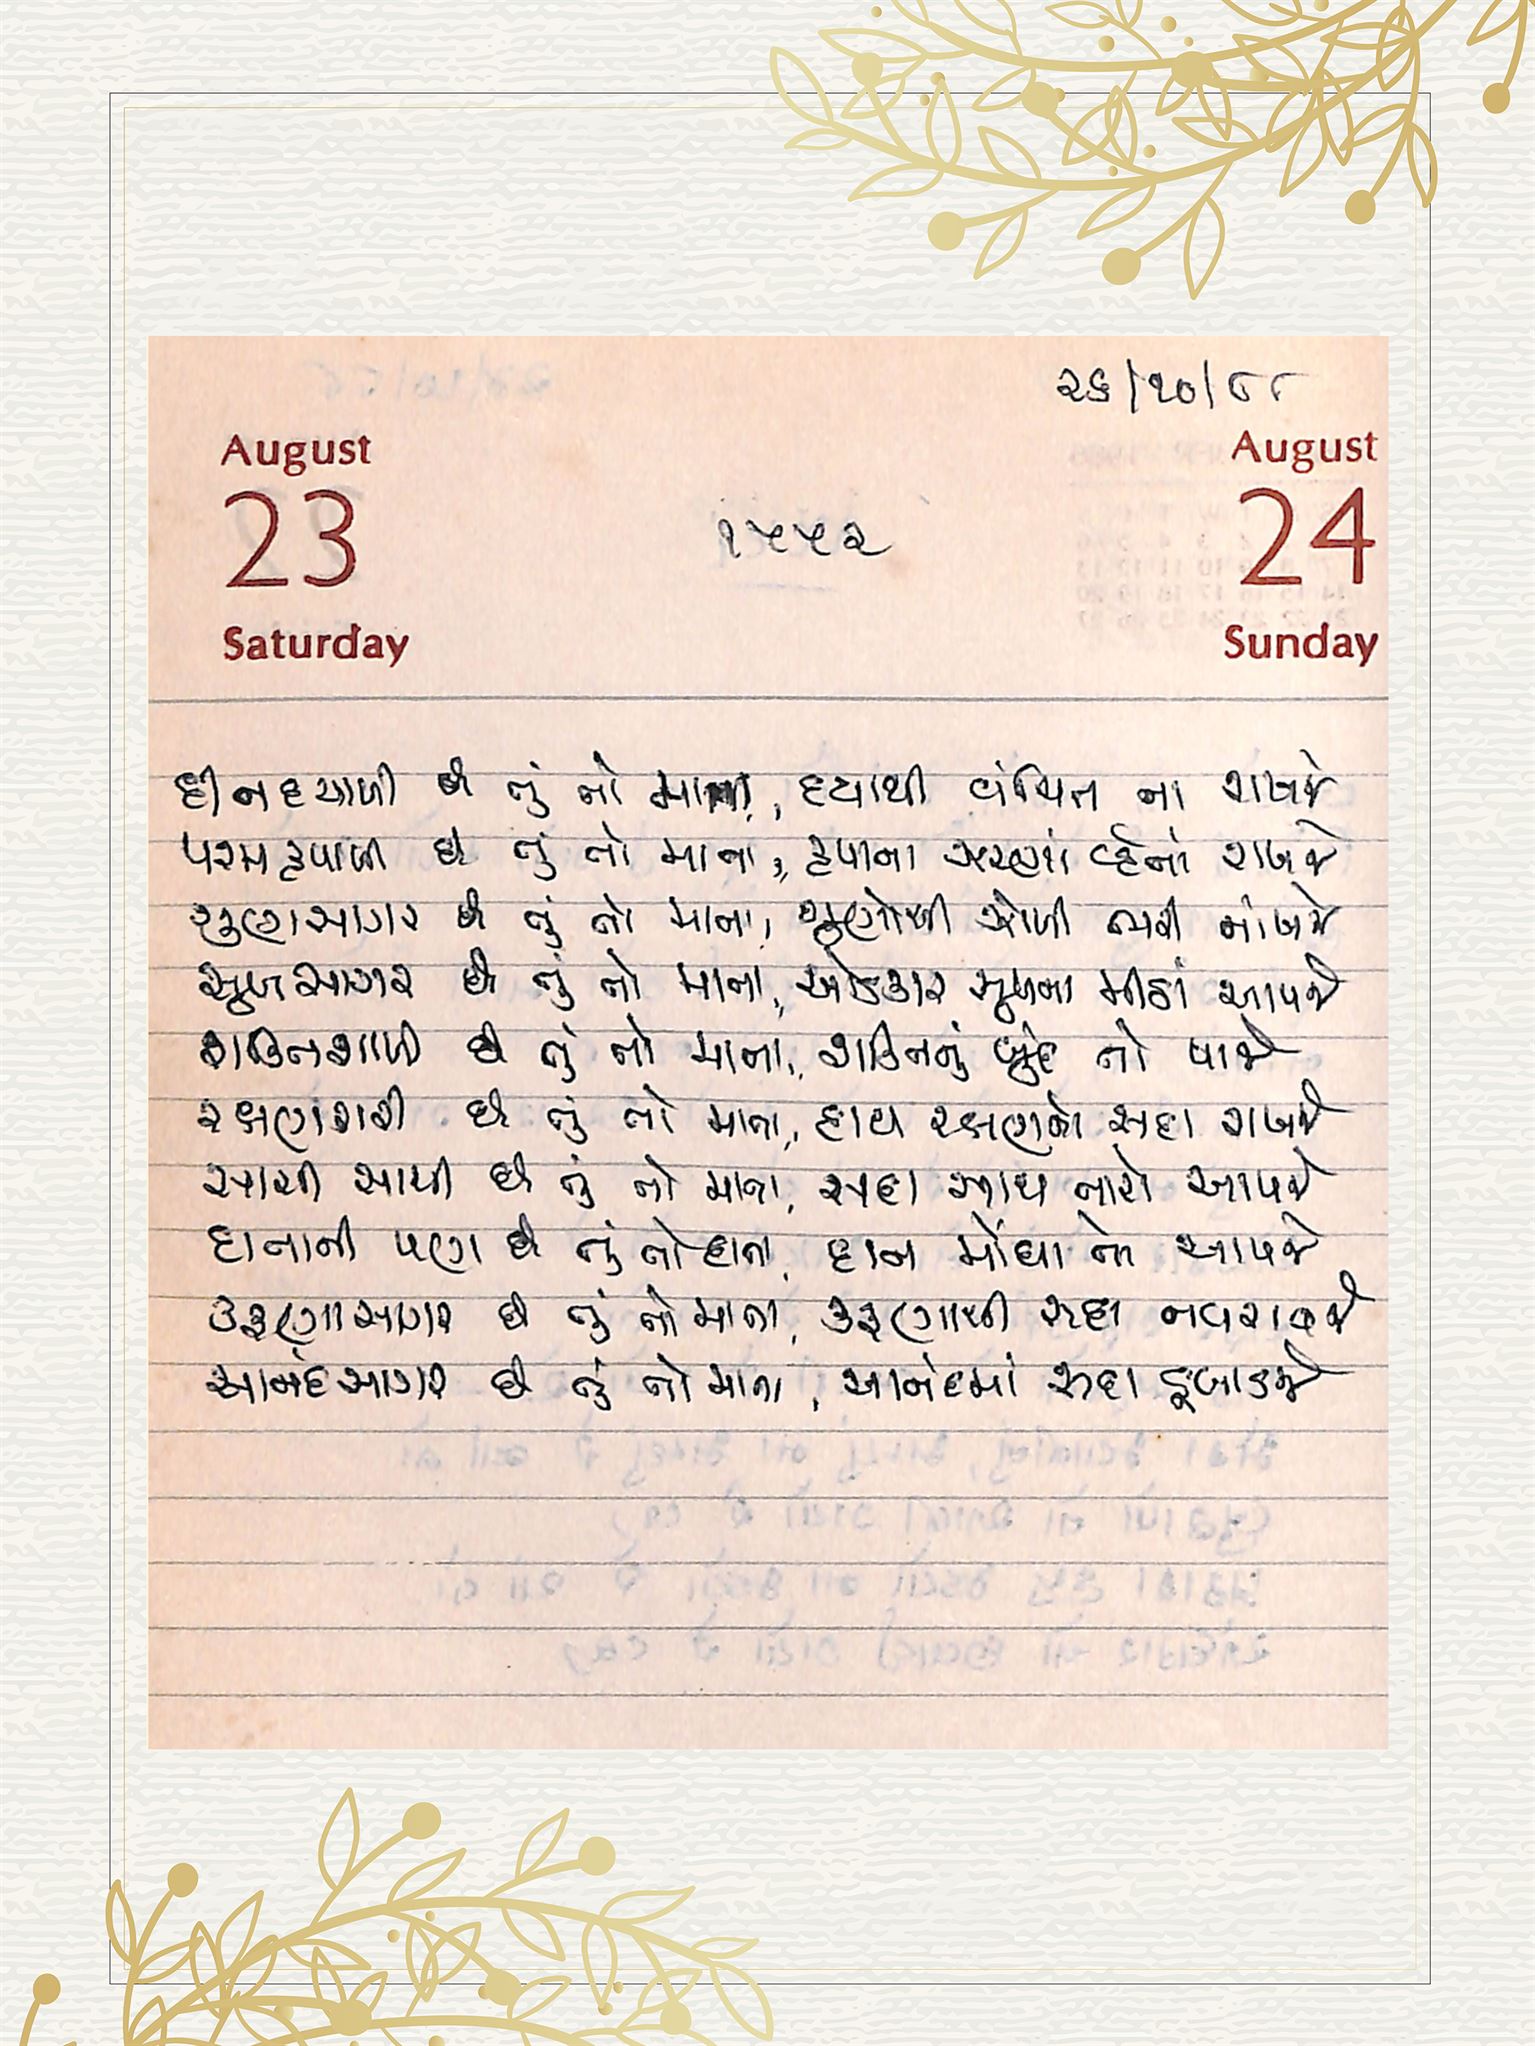 ૨૬/૧૦/૮૮
August
23
Saturday
૧૫૫૨
August
24
Sunday
દીનદયાળી છે તું તો માતા, દયાથી વંચિત ના રાખજે
પરમકૃપાળી છે તું તો માતા, કૃપાના ઝરણાં વ્હેતાં રાખજે
ગુણસાગર છે તું તો માતા, ગુણોથી ઝોળી ભરી નાંખજે
સુખસાગર છે તું તો માતા, એકવાર સુખના મીઠાં આપજે
શક્તિશાળી છે તું તો માતા, શક્તિનું બુંદ તો પાજે
રક્ષણકારી છે તું તો માતા, હાથ રક્ષણનો સદા રાખજે
સાચી સાથી છે તું તો માતા, સદા સાથ તારો આપજે
દાનાની પણ છે તું તો દાતા, દાન મોંઘા તો આપજે
કરૂણાસાગર છે તું તો માતા, કરૂણાથી સદા નવરાવજે
આનંદસાગર છે તું તો માતા, આનંદમાં સદા ડૂબાડજે